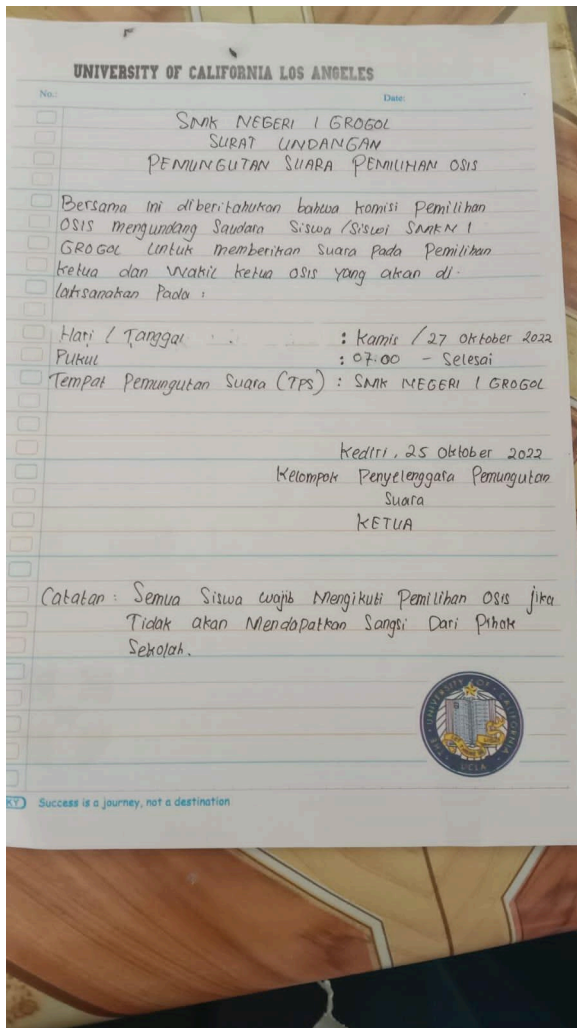 UNIVERSITY OF CALIFORNIA LOS ANGELES
No.:
Date:
SMK NEGERI 1 GROGOL
SURAT UNDANGAN
PEMUNGUTAN SUARA PEMILIHAN OSIS
Bersama ini diberitahukan bahwa komisi Pemilihan
OSIS mengundang Saudara Siswa/Siswi SMKN 1
GROGOL Untuk memberikan Suara Pada Pemilihan
ketua dan Wakil ketua OSIS yang akan di-
laksanakan Pada :
Hari / Tanggal : Kamis / 27 Oktober 2022
Pukul : 07.00 - Selesai
Tempat Pemungutan Suara (TPS) : SMK NEGERI 1 GROGOL
Kediri, 25 Oktober 2022
Kelompok Penyelenggara Pemungutan
Suara
KETUA
Catatan : Semua Siswa wajib Mengikuti Pemilihan OSIS jika
Tidak akan Mendapatkan Sangsi Dari Pihak
Sekolah.
THE UNIVERSITY OF CALIFORNIA
UCLA
KY Success is a journey, not a destination